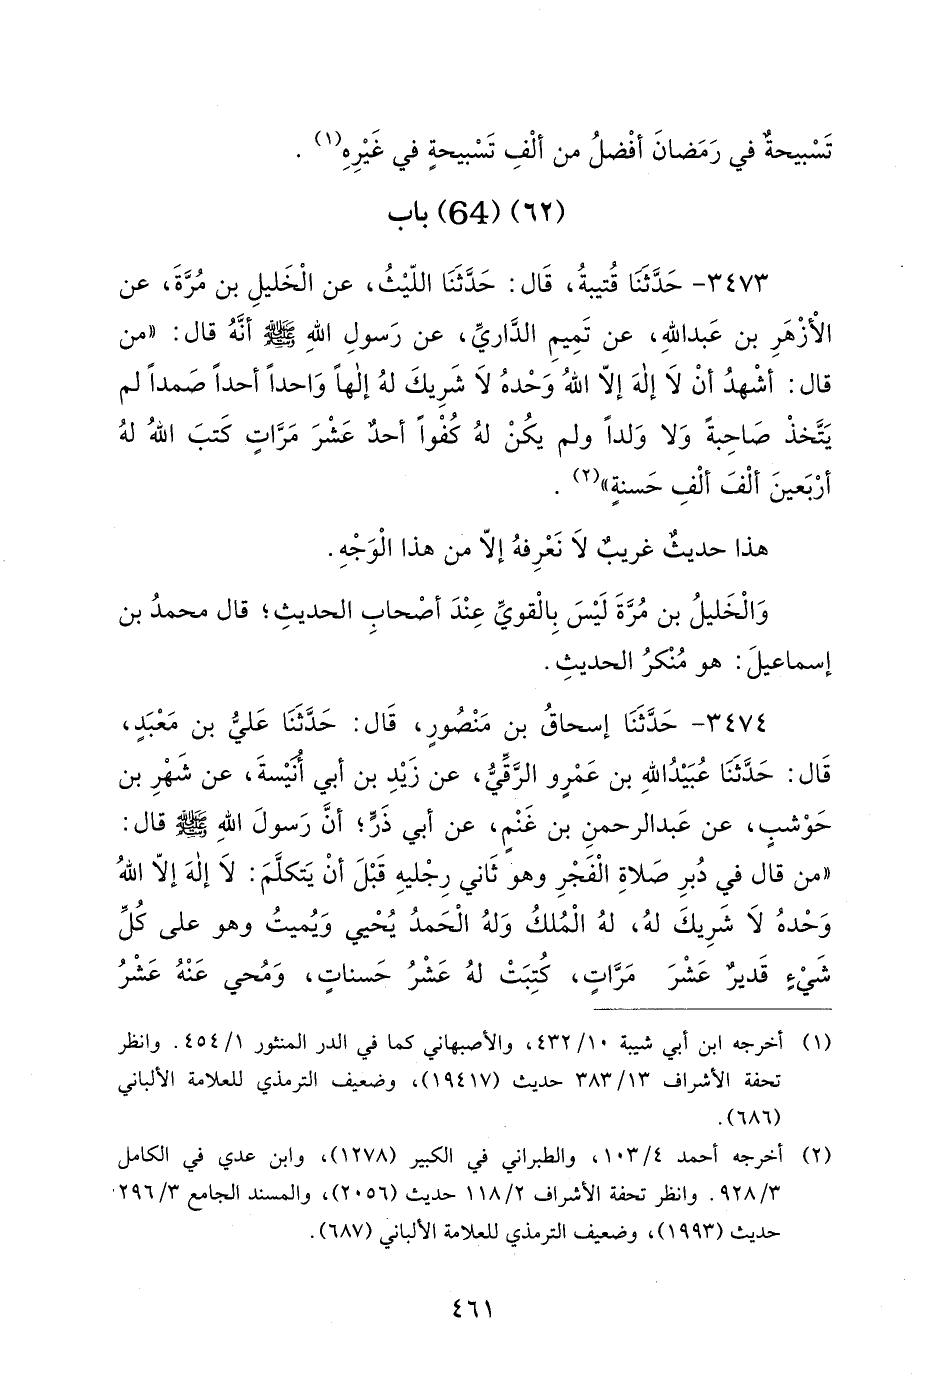 تَسْبيحةٌ في رَمَضانَ أفْضلُ من ألْفِ تَسْبيحةٍ في غَيْرِهِ(١) .
(٦٢) (64) باب
٣٤٧٣- حَدَّثَنَا قُتيبةُ، قَال: حَدَّثَنَا اللّيْثُ، عن الْخَليلِ بن مُرَّةَ، عن
الأزْهَرِ بن عَبداللهِ، عن تَميمٍ الدَّاريِّ، عن رَسولِ اللهِ ﷺ أنَّهُ قال: «من
قال: أشْهدُ أنْ لَا إلٰهَ إلاّ اللهُ وَحْدهُ لاَ شَريكَ لهُ إلٰهاً وَاحداً أحداً صَمداً لم
يَتَّخذْ صَاحِبةً وَلا وَلداً ولم يكُنْ لهُ كُفْواً أحدٌ عَشْرَ مَرَّاتٍ كَتبَ اللهُ لهُ
أرْبَعينَ ألْفَ ألْفِ حَسنةٍ»(٢) .
هذا حديثٌ غريبٌ لاَ نَعْرفهُ إلاّ من هذا الْوَجْهِ.
وَالْخَليلُ بن مُرَّةَ لَيْسَ بِالْقويِّ عِنْدَ أصْحابِ الحديثِ؛ قال محمدُ بن
إسماعيلَ: هو مُنْكرُ الحديثِ.
٣٤٧٤- حَدَّثَنَا إسحاقُ بن مَنْصُورٍ، قَال: حَدَّثَنَا عَليُّ بن مَعْبَدٍ،
قَال: حَدَّثَنَا عُبَيْدُاللهِ بن عَمْرٍو الرَّقِّيُّ، عن زَيْدِ بن أبي أُنَيْسةَ، عن شَهْرِ بن
حَوْشبٍ، عن عَبدالرحمنِ بن غَنْمٍ، عن أبي ذَرٍّ؛ أنَّ رَسولَ اللهِ ﷺ قال:
«من قال في دُبرِ صَلاةِ الْفَجْرِ وهو ثَاني رِجْليهِ قَبْلَ أنْ يَتكلَّمَ: لاَ إلٰهَ إلاّ اللهُ
وَحْدهُ لاَ شَريكَ لهُ، لهُ الْمُلكُ وَلهُ الْحَمدُ يُحْيي وَيُميتُ وهو على كُلِّ
شَيْءٍ قَديرٌ عَشْرَ مَرَّاتٍ، كُتِبَتْ لهُ عَشْرُ حَسناتٍ، وَمُحي عَنْهُ عَشْرُ
(١) أخرجه ابن أبي شيبة ١٠/ ٤٣٢، والأصبهاني كما في الدر المنثور ١/ ٤٥٤. وانظر
تحفة الأشراف ١٣/ ٣٨٣ حديث (١٩٤١٧)، وضعيف الترمذي للعلامة الألباني
(٦٨٦).
(٢) أخرجه أحمد ٤/ ١٠٣، والطبراني في الكبير (١٢٧٨)، وابن عدي في الكامل
٣/ ٩٢٨. وانظر تحفة الأشراف ٢/ ١١٨ حديث (٢٠٥٦)، والمسند الجامع ٣/ ٢٩٦
حديث (١٩٩٣)، وضعيف الترمذي للعلامة الألباني (٦٨٧).
٤٦١